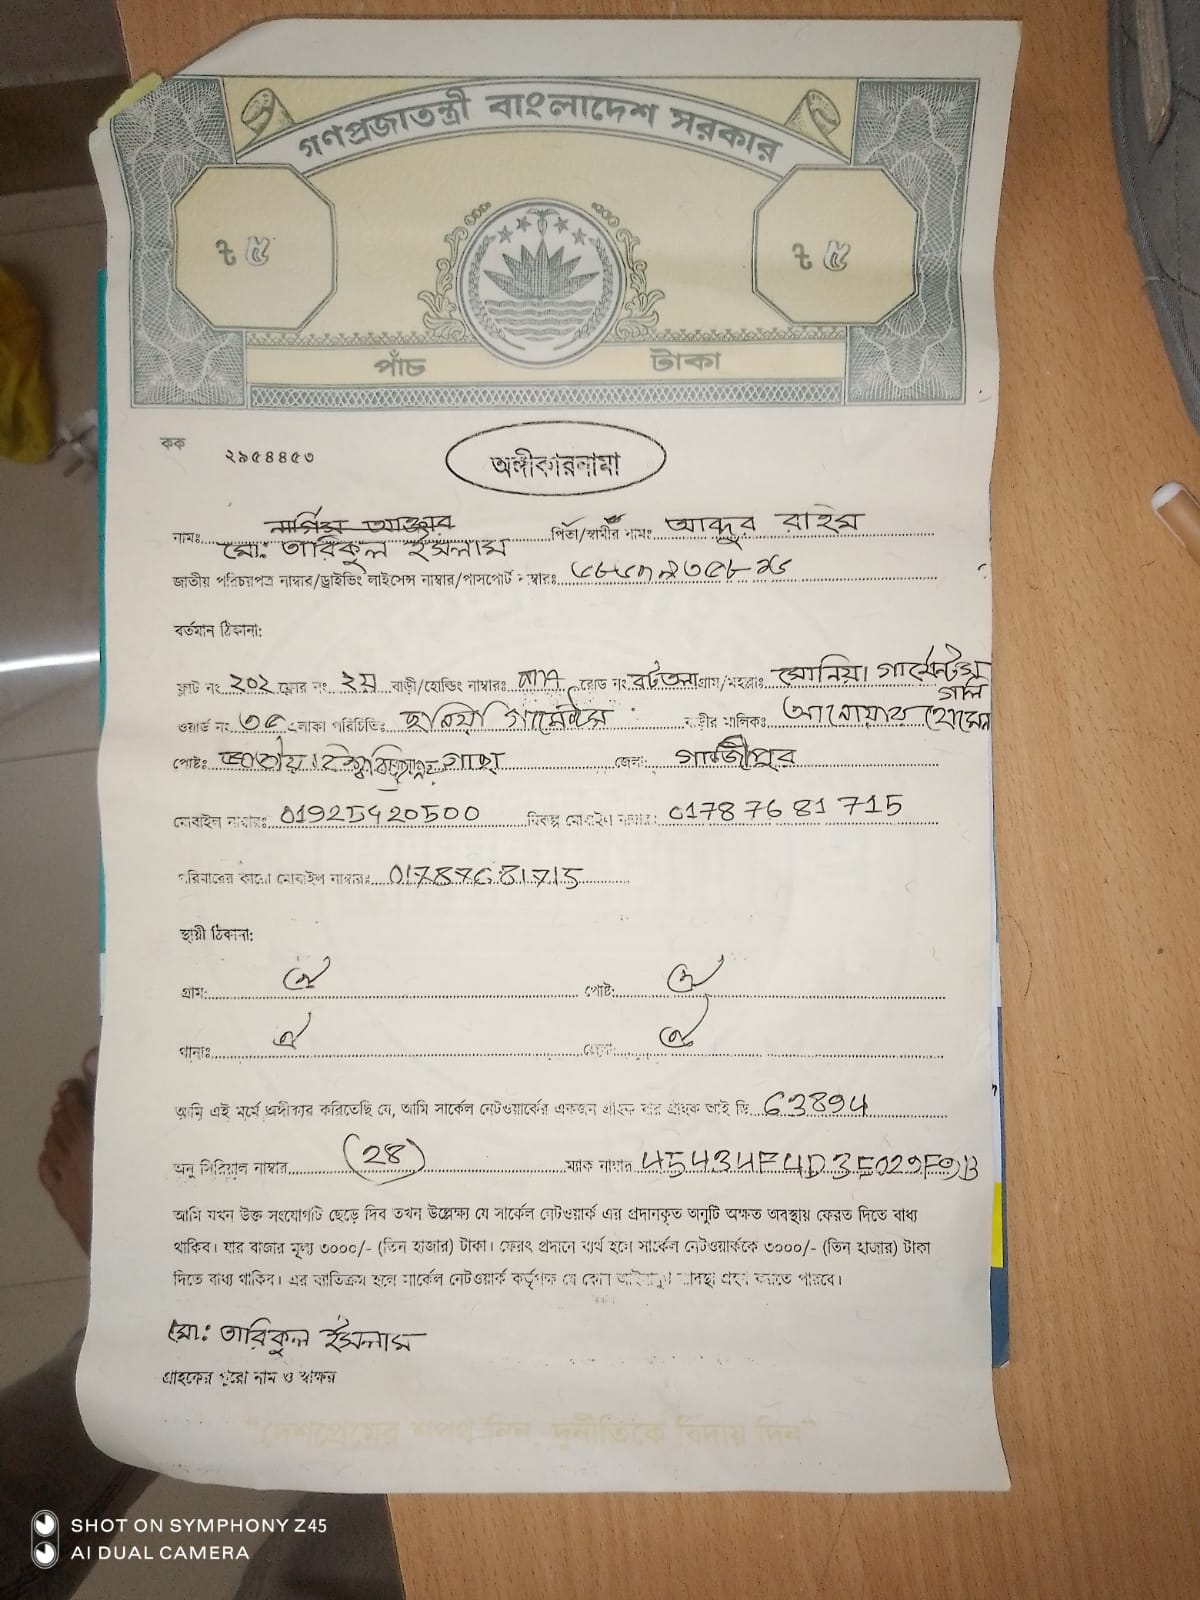 গণপ্রজাতন্ত্রী বাংলাদেশ সরকার
৳ ৫ ৳ ৫
পাঁচ টাকা
কক ২৯৫৪৪৫৩
অঙ্গীকারনামা
নার্গিস আক্তার
নামঃ মো: তারিকুল ইসলাম পিতা/স্বামীর নামঃ আব্দুর রহিম
জাতীয় পরিচয়পত্র নাম্বার/ড্রাইভিং লাইসেন্স নাম্বার/পাসপোর্ট নাম্বারঃ
বর্তমান ঠিকানা:
ফ্লাট নং ২০২ ফ্লোর নং ২য় বাড়ী/হোল্ডিং নাম্বারঃ রোড নং বটতলা গ্রাম/মহল্লাঃ সোনিয়া গার্মেন্টস গলি
ওয়ার্ড নং ৩৫ এলাকা পরিচিতিঃ গার্মেন্টস বাড়ীর মালিকঃ আনোয়ার হোসেন
পোষ্টঃ জাতীয় বিশ্ববিদ্যালয় গাছা জেলা: গাজীপুর
মোবাইল নাম্বারঃ 01925420500 বিকল্প মোবাইল নাম্বার: 01787681715
পরিবারের কারো মোবাইল নাম্বারঃ 01787681715
স্থায়ী ঠিকানা:
গ্রাম: ঐ পোষ্ট: ঐ
থানাঃ ঐ জেলা: ঐ
আমি এই মর্মে অঙ্গীকার করিতেছি যে, আমি সার্কেল নেটওয়ার্কের একজন গ্রাহক যার গ্রাহক আই ডি 63894
অনু সিরিয়াল নাম্বার (28) ম্যাক নাম্বার 45434F4D3E029F9B
আমি যখন উক্ত সংযোগটি ছেড়ে দিব তখন উল্লেক্ষ্য যে সার্কেল নেটওয়ার্ক এর প্রদানকৃত অনুটি অক্ষত অবস্থায় ফেরত দিতে বাধ্য
থাকিব। যার বাজার মূল্য ৩০০০/- (তিন হাজার) টাকা। ফেরৎ প্রদানে ব্যর্থ হলে সার্কেল নেটওয়ার্ককে ৩০০০/- (তিন হাজার) টাকা
দিতে বাধ্য থাকিব। এর ব্যতিক্রম হলে সার্কেল নেটওয়ার্ক কর্তৃপক্ষ যে কোন আইনানুগ ব্যবস্থা গ্রহণ করতে পারবে।
মো: তারিকুল ইসলাম
গ্রাহকের পুরো নাম ও স্বাক্ষর
"দেশপ্রেমের শপথ নিন, দুর্নীতিকে বিদায় দিন"
SHOT ON SYMPHONY Z45
AI DUAL CAMERA